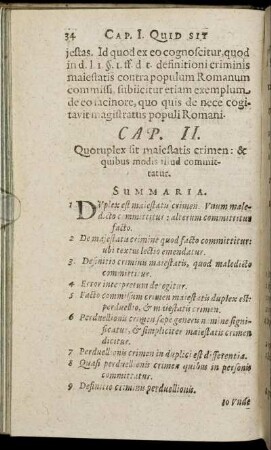 34 CAP. I. QUID SIT
jestas. Id quod ex eo cognoscitur, quod
in d. l. 1 §. 1. ff d. t. definitioni criminis
maiestatis contra populum Romanum
commissi, subiicitur etiam exemplum,
de eo facinore, quo quis de nece cogi
tavit magistratus populi Romani.
CAP. II.
Quotuplex sit maiestatis crimen: &
quibus modis illud commit-
tatur.
SUMMARIA.
1 DUplex est maiestatis crimen. Unum male-
dicto committitur: alterum committitur
facto.
2 De majestatis crimine quod facto committitur:
ubi textus lectio emendatur.
3 Definitio criminis maiestatis, quod maledicto
committitur.
4 Error interpretum detegitur.
5 Facto commissum crimen maiestatis duplex est:
perduellio, & maiestatis crimen.
6 Perduellionis crimen sæpe generis nomine signi-
ficatur, & simpliciter maiestatis crimen
dicitur.
7 Perduellionis crimen in duplici est differentia.
8 Quasi perduellionis crimen quibus in personis
committatur.
9 Definitio criminis perduellionis.
10 Unde